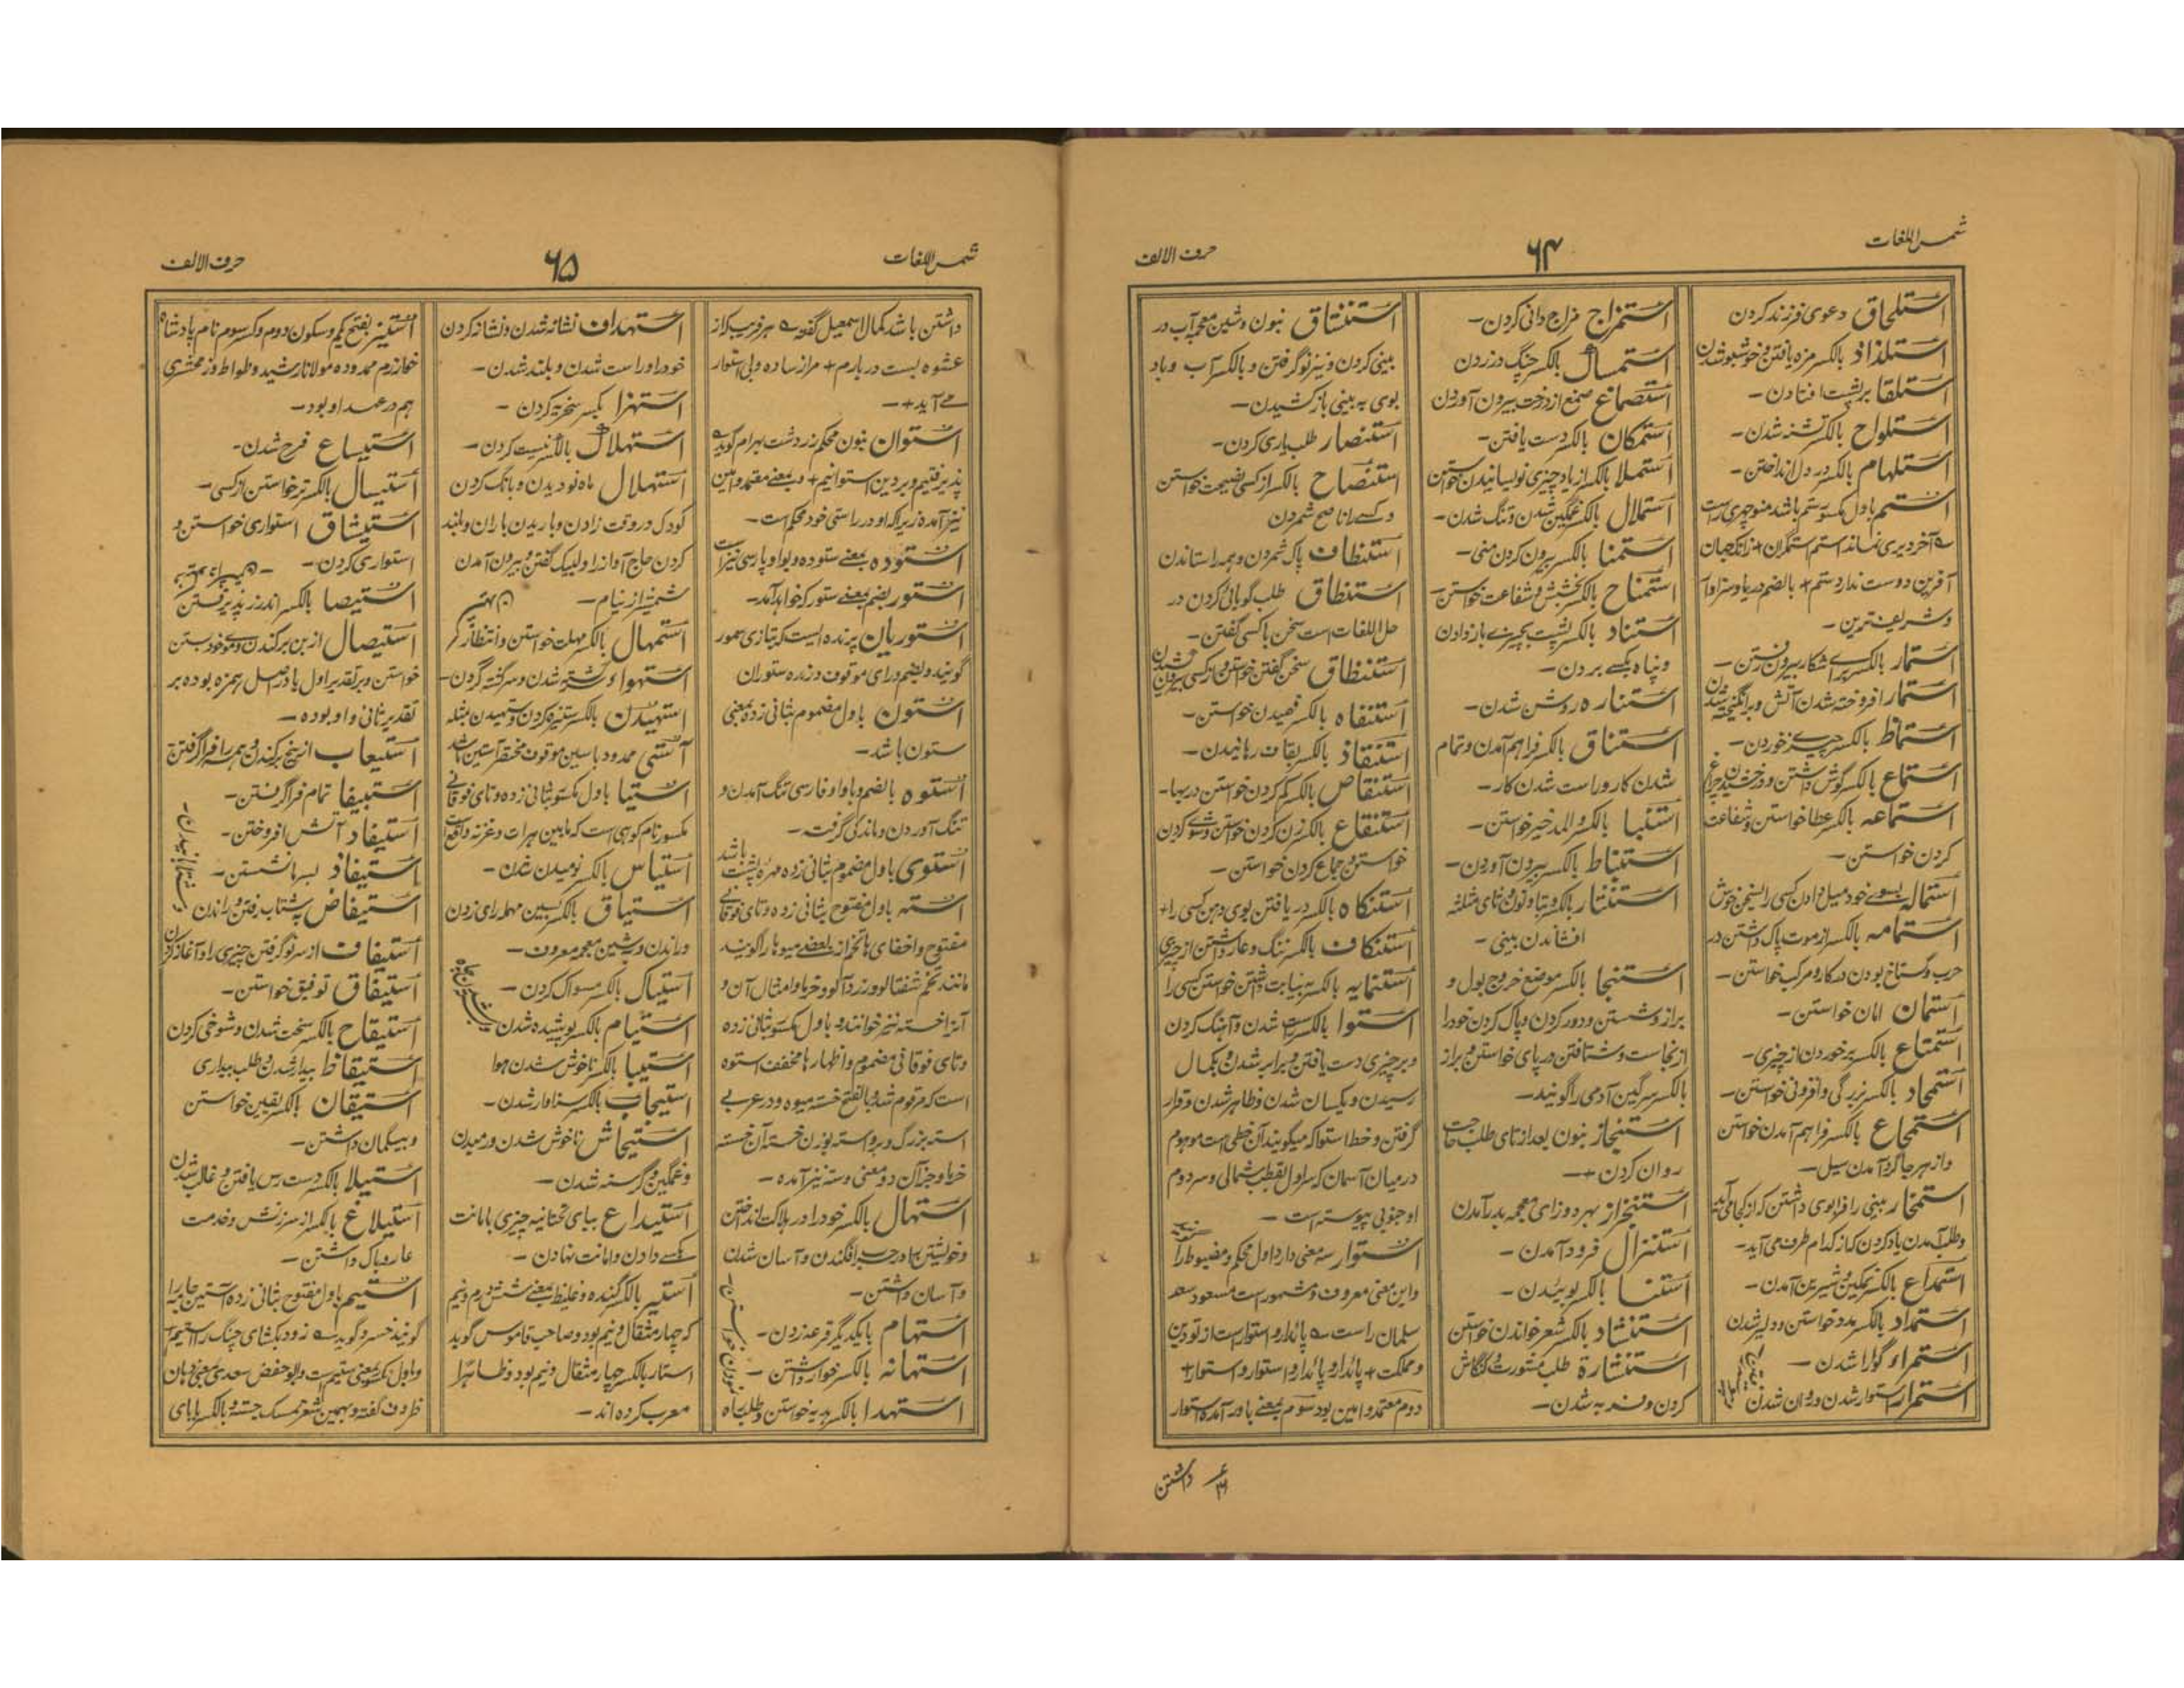 شمس اللغات
۶۴
حرف الالف
استلحاق دعوی فرزند کردن
استلذاذ بالکسر مزه یافتن و خوشبو شدن
استلقا بر پشت افتادن -
استلواح بالکسر تشنه شدن -
استلهام بالکسر در دل انداختن -
استم باول مکسور ستم باشد منوچهری راست
آفرین دوست ندارد ستم + بالضم دریا و سزاوار
و شریف ترین -
استمار بالکسر برای شکار بیرون رفتن -
استمار افروخته شدن آتش و برانگیخته شدن
استماط بالکسر چیزی خوردن -
استماع بالکسر گوش داشتن و درخشیدن چراغ
استماعه بالکسر عطا خواستن و شفاعت
کردن خواستن -
استماله بسوی خود میل دادن کسی را بسخن خوش
استمامه بالکسر از موت پاک داشتن در
حرب و گستاخ بودن در کار و مرکب خواستن -
استمان امان خواستن -
استمتاع بالکسر برخوردن از چیزی -
استمجاد بالکسر بزرگی و افزونی خواستن -
استمجاع بالکسر فراهم آمدن خواستن
و از هر جا گرد آمدن سیل -
استمخار بینی را فرا بوی داشتن که از کجا می آید
و طلب آمدن باد کردن که از کدام طرف می آید -
استمداع بالکسر نمکین و شیرین آمدن -
استمداد بالکسر مدد خواستن و دلیر شدن
استمراء گوارا شدن -
استمرار استوار شدن و روان شدن
استمزاج مزاج دانی کردن -
استمساک بالکسر چنگ در زدن
استصماغ صمغ از درخت بیرون آوردن
استمکان بالکسر دست یافتن -
استملا بالکسر از یاد چیزی نویسانیدن خواستن
استملال بالکسر غمگین شدن و تنگ شدن -
استمنا بالکسر بیرون کردن منی -
استمناح بالکسر بخشش و شفاعت خواستن -
استناد بالکسر پشت بچیزی باز دادن
و پناه بکسی بردن -
استناره روشن شدن -
استناق بالکسر فراهم آمدن و تمام
شدن کار و راست شدن کار -
استنبا بالکسر والمد خبر خواستن -
استنباط بالکسر بیرون آوردن -
استنثار بالکسر و بتا و نون و ثای مثلثه
افشاندن بینی -
استنجا بالکسر موضع خروج بول و
براز و شستن و دور کردن و پاک کردن خود را
از نجاست و شتافتن در پای خواستن و براز
بالکسر سرگین آدمی را گویند -
استنجاز بنون بعد از تای طلب حاجت
روان کردن + -
استنخراز بهر دو زای معجمه بدر آمدن
استنزال فرود آمدن -
استنسا بالکسر بوئیدن -
استنشاد بالکسر شعر خواندن خواستن
استنشارة طلب مشورت و کنگاش
کردن و فربه شدن -
استنشاق بنون و شین معجمه آب در
بینی کردن و نیز نو گرفتن و بالکسر آب و باد
بوی به بینی باز کشیدن -
استنصار طلب یاری کردن -
استنصاح بالکسر از کسی نصیحت خواستن
و کسی را ناصح شمردن
استنظاف پاک شمردن و همه را ستاندن
استنطاق طلب گویائی کردن در
حل اللغات است سخن با کسی گفتن -
استنطاق سخن گفتن خواستن از کسی
استنفاه بالکسر فهمیدن خواستن -
استنقاذ بالکسر بقاف رهانیدن -
استنقاص بالکسر کم کردن خواستن در بها -
استنقاع بالکسر
خواستن و جماع کردن خواستن -
استنکاه بالکسر دریافتن بوی دهن کسی را +
استنکاف بالکسر ننگ و عار داشتن از چیزی
استنمایه بالکسر به نیابت
استوا بالکسر راست شدن و آهنگ کردن
و بر چیزی دست یافتن و برابر شدن و بکمال
رسیدن و یکسان شدن و ظاهر شدن و قرار
گرفتن و خط استوا که میگویند آن خطی است موهوم
در میان آسمان که سر اول بقطب شمالی و سر دوم
او جنوبی پیوسته است -
استوار سه معنی دارد اول محکم و مضبوط را
و این معنی معروف و مشهور است مسعود سعد
سلمان راست پائدار و استوار است از تو دین
و مملکت + پائدار و پائدار و استوار و استوار +
دوم معتمد و امین بود سوم بمعنی باور آمده استوار
داشتن
شمس اللغات
۶۵
حرف الالف
داشتن باشد کمال اسمعیل گفته هر فریب کز
عشوه بست دربارم + مرا ز ساده ولی استوار
می آید + -
استوان بنون محکم زردشت بهرام گوید
پذیرفتیم و بر دین استوانیم + و بمعنی معتمد و امین
نیز آمده زیرا که او در راستی خود محکم است -
استوده بمعنی ستوده و بواو پارسی نیز است
استور بضم بمعنی ستور که خواهد آمد -
استوریان پرنده ایست که بتازی سمور
گویند و بضم و رای موقوف و زده ستوران
استون باول مضموم بثانی زده بمعنی
ستون باشد -
استوه بالضم و باواو فارسی تنگ آمدن و
تنگ آوردن و ماندگی گرفت -
استوی باول مضموم بثانی زده مهره پشت باشد
استه باول مفتوح بثانی زده و تای فوقانی
مفتوح و اخفای ها تخم از بعضی میوها را گویند
مانند تخم شفتالو و زردآلو و خرما و امثال آن و
آنرا خسته نیز خوانند و باول مکسور بثانی زده
و تای فوقانی مضموم و اظهار ها مخفف استوه
است که مرقوم شد و بالفتح خسته میوه و در عربی
استه بزرگ و بر واسته بوزن خسته آن خسته
خرما و جز آن دو معنی و سته نیز آمده -
استهال بالکسر خود را در هلاکت انداختن
و خویشتن بچاه درافگندن و آسان شدن
و آسان داشتن -
استهام با یکدیگر قرعه زدن -
استهانه بالکسر خوار داشتن -
استهدا بالکسر هدیه خواستن و طلب راه
استهداف نشانه شدن و نشانه کردن
خود را و راست شدن و بلند شدن -
استهزا بکسر سخریه کردن -
استهلاک بالکسر نیست کردن -
استهلال ماه نو دیدن و بانگ کردن
کودک در وقت زادن و باریدن باران و بلند
کردن حاج آواز را و لبیک گفتن و بیرون آمدن
شمشیر از نیام -
استمهال بالکسر مهلت خواستن و انتظار کر
استهواء شیفته شدن و سرگشته کردن -
استهیدن بالکسر ستیزه کردن و ستهیدن مثله
آستی ممدود با سین موقوف مختصر آستین باشد
استیا باول مکسور بثانی زده و تای فوقانی
مکسور نام کوهی است که مابین هرات و غزنه واقع است
استیاس بالکسر نومیدن شدن -
استیاق بالکسر بسین مهمله رای زدن
و راندن و بشین معجمه معروف -
استیاک بالکسر مسواک کردن -
استیام بالکسر پوشیده شدن
استیبا بالکسر ناخوش شدن هوا
استیجاب بالکسر سزاوار شدن -
استیحاش ناخوش شدن و رمیدن
و غمگین و گرسنه شدن -
استیداع بیای تحتانیه چیزی بامانت
بکسی دادن و امانت نهادن -
استیر بالکسر گنده و غلیظ بمعنی شش درم و نیم
که چهار مثقال و نیم بود و صاحب قاموس گوید
استار بالکسر چهار مثقال و نیم بود و ظاهرا
معرب کرده اند -
استیز بفتح یکم و سکون دوم و کسر سوم نام پادشاه
خوارزم ممدوده مولانا رشید وطواط و زمخشری
هم در عهد او بود -
استیساع فرح شدن -
استیسال بالکسر تر خواستن از کسی -
استیثاق استواری خواستن و
استواری کردن -
استیصا بالکسر اندرز پذیرفتن
استیصال از بن برکندن و موخود بستن
خواستن و بر تقدیر اول یا در اصل همزه بوده بر
تقدیر ثانی واو بوده -
استیعاب از بیخ برکندن و همه را فرا گرفتن
استیفا تمام فرا گرفتن -
استیفاد آتش افروختن -
استیفاذ بسر ما نشستن -
استیفاض بشتاب رفتن و راندن
استیفاف از سر نو گرفتن چیزی را و آغاز کردن
استیفاق توفیق خواستن -
استیقاح بالکسر سخت شدن و شوخی کردن
استیقاظ بیدار شدن و طلب بیداری
استیقان بالکسر یقین خواستن
و بیگمان داشتن -
استیلا بالکسر دست رس یافتن و غالب شدن
استیلاغ بالکسر از سرزنش و خدمت
عار و باک داشتن -
استیم باول مفتوح بثانی زده آستین جامه را
گویند خسرو گوید زود بکشای چنگ را استیم
و اول مکسور بمعنی ستیم است و ابو حفض سعدی بمعنی دهان
ظروف گفته و بهمین شعر تمسک جسته و بالکسر با یای